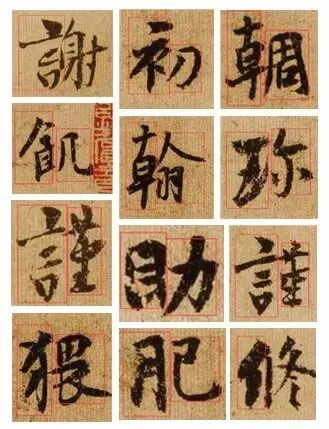 謝 初 輖
飢 翰 珎
謹 助 謹
猥 肥 修